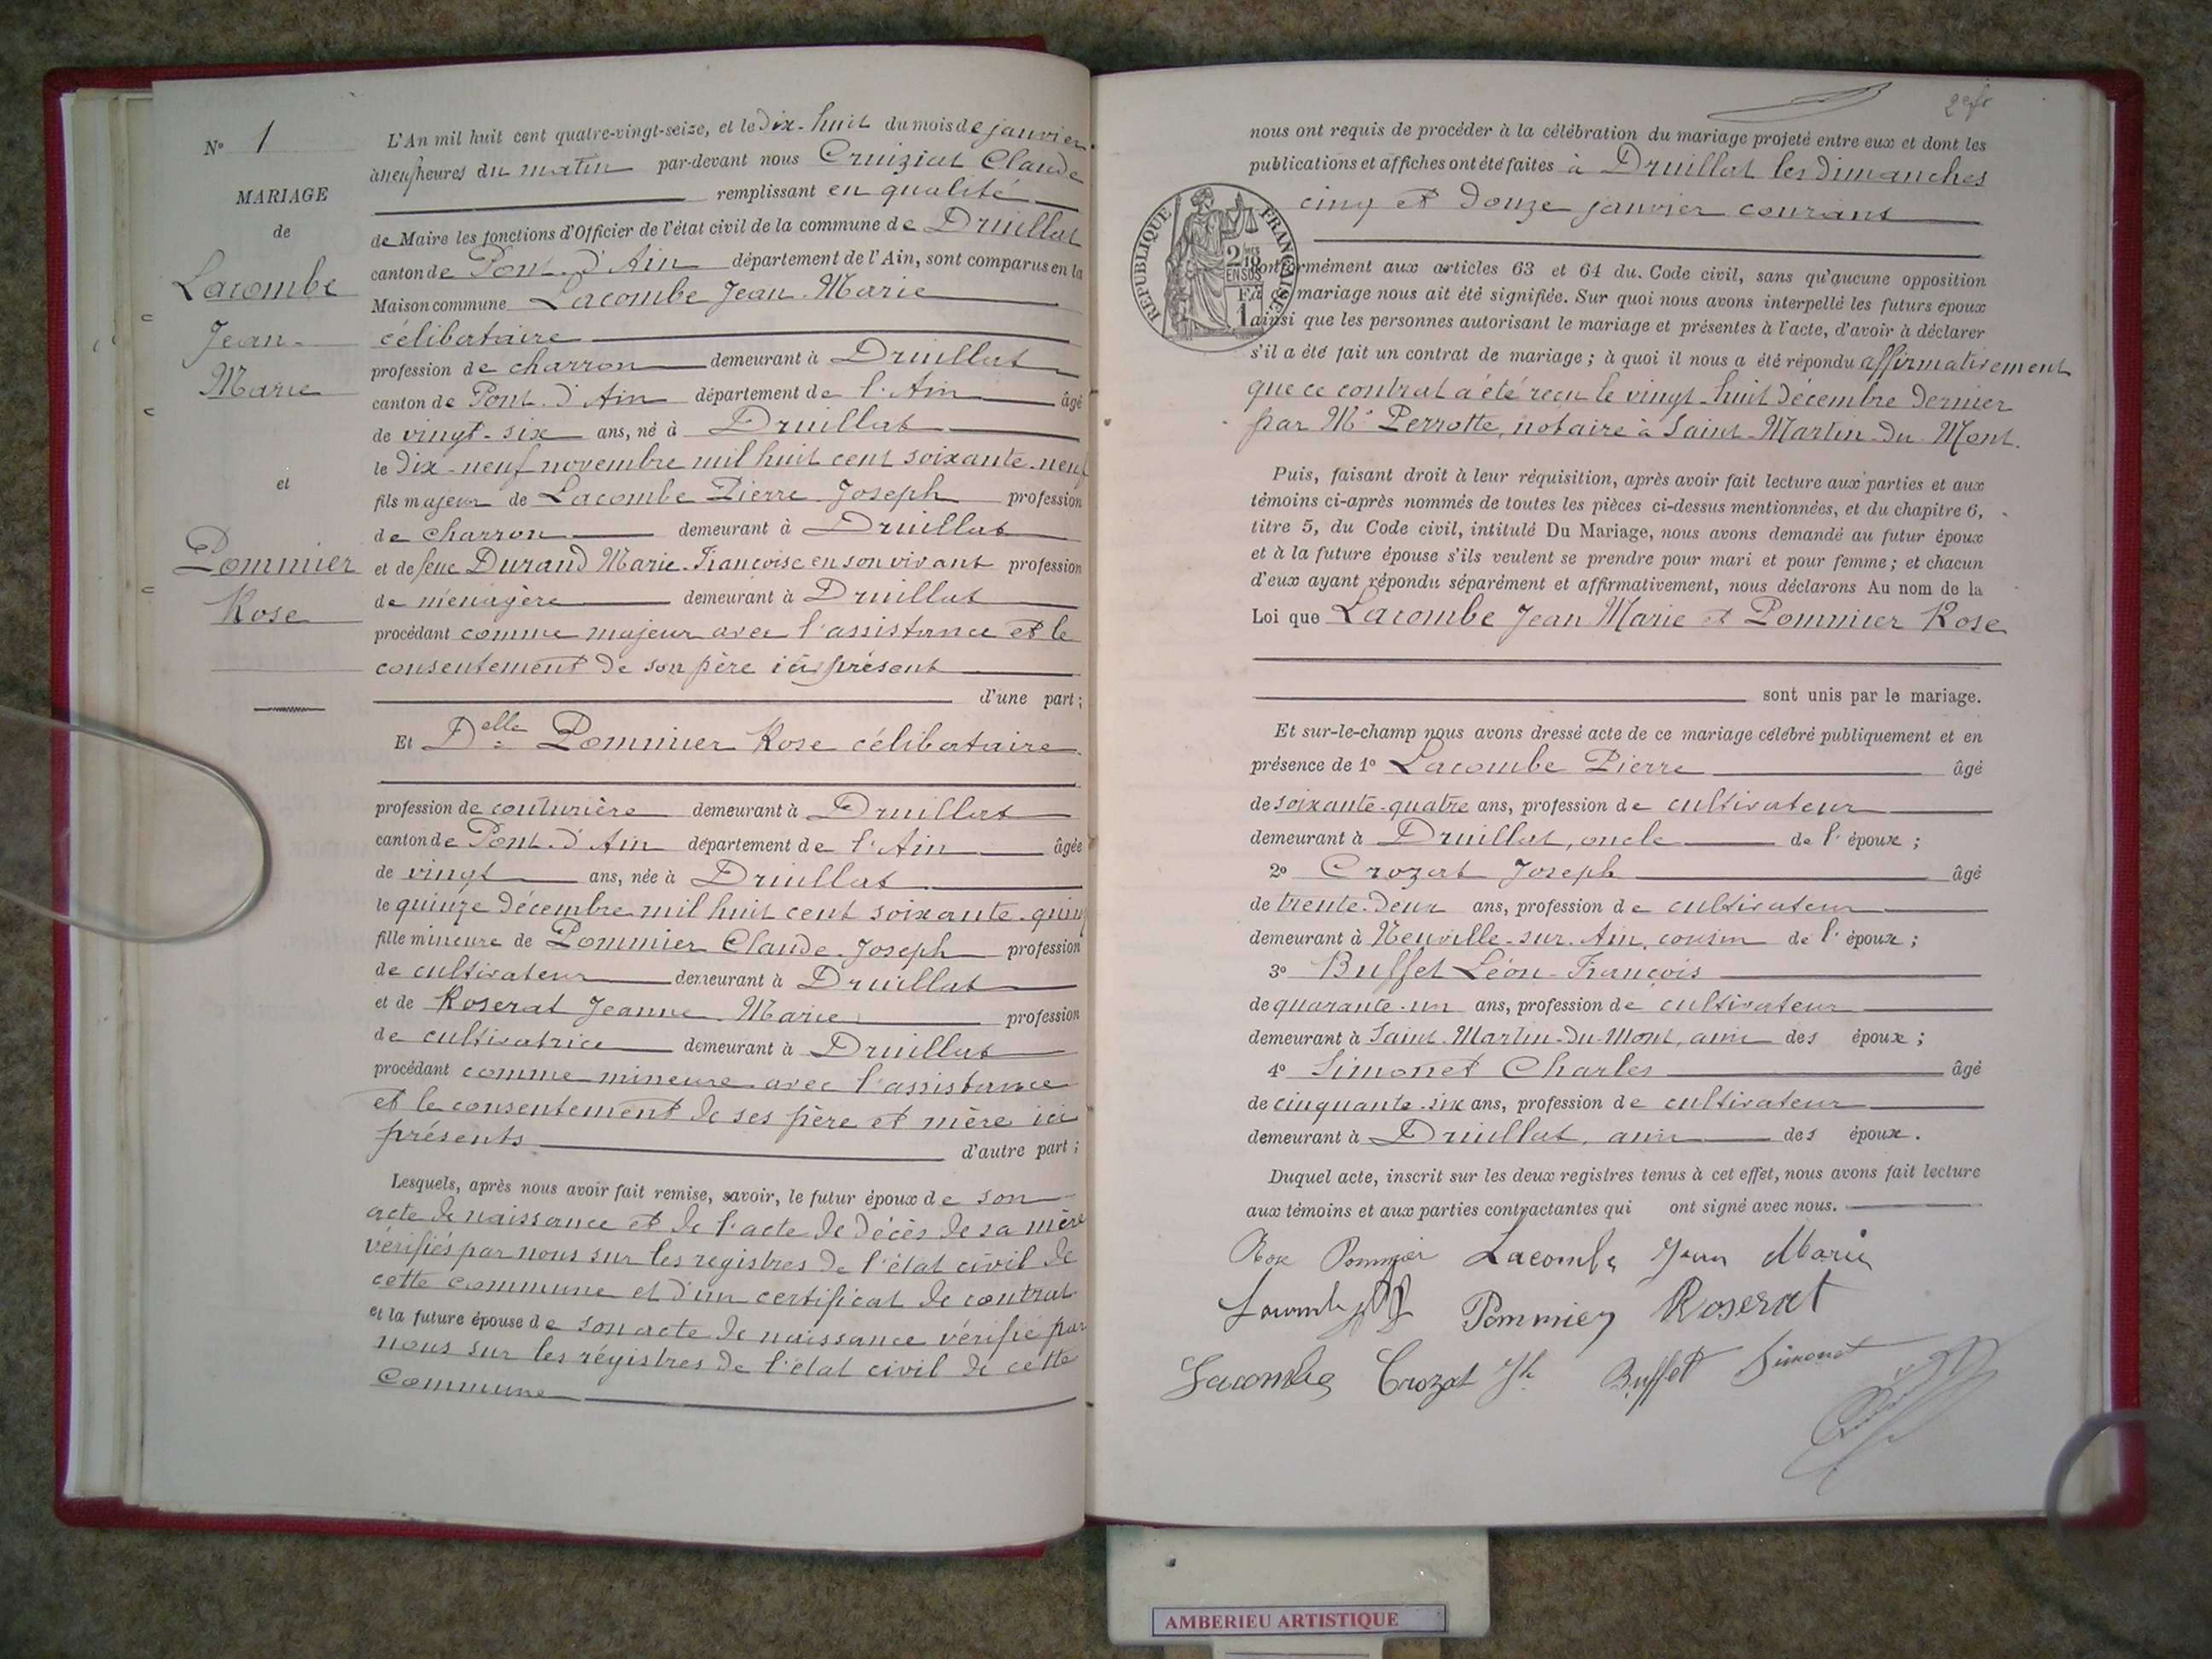 N° 1
MARIAGE
de
Lacombe
Jean-
Marie
et
Pommier
Rose
L'An mil huit cent quatre-vingt-seize, et le dix-huit du mois de janvier
à neuf heures du matin par-devant nous Cruiziat Claude
remplissant en qualité
de Maire les fonctions d'Officier de l'état civil de la commune de Druillat
canton de Pont-d'Ain département de l'Ain, sont comparus en la
Maison commune Lacombe Jean-Marie
célibataire
profession de charron demeurant à Druillat
canton de Pont-d'Ain département de l'Ain âgé
de vingt-six ans, né à Druillat
le dix-neuf novembre mil huit cent soixante-neuf
fils majeur de Lacombe Pierre-Joseph profession
de charron demeurant à Druillat
et de feue Durand Marie-Françoise en son vivant profession
de ménagère demeurant à Druillat
procédant comme majeur avec l'assistance et le
consentement de son père ici présent
d'une part;
Et Delle Pommier Rose célibataire
profession de couturière demeurant à Druillat
canton de Pont-d'Ain département de l'Ain âgée
de vingt ans, née à Druillat
le quinze décembre mil huit cent soixante-quin
fille mineure de Pommier Claude-Joseph profession
de cultivateur demeurant à Druillat
et de Roserat Jeanne-Marie profession
de cultivatrice demeurant à Druillat
procédant comme mineure avec l'assistance
et le consentement de ses père et mère ici
présents d'autre part;
Lesquels, après nous avoir fait remise, savoir, le futur époux de son
acte de naissance et de l'acte de décès de sa mère
vérifiés par nous sur les registres de l'état civil de
cette commune et d'un certificat de contrat
et la future épouse de son acte de naissance vérifié par
nous sur les régistres de l'état civil de cette
commune
nous ont requis de procéder à la célébration du mariage projeté entre eux et dont les
publications et affiches ont été faites à Druillat les dimanches
cinq et douze janvier courant
RÉPUBLIQUE FRANÇAISE
2/10 EN SUS
conformément aux articles 63 et 64 du. Code civil, sans qu'aucune opposition
à ce mariage nous ait été signifiée. Sur quoi nous avons interpellé les futurs époux
ainsi que les personnes autorisant le mariage et présentes à l'acte, d'avoir à déclarer
s'il a été fait un contrat de mariage; à quoi il nous a été répondu affirmativement
que ce contrat a été reçu le vingt-huit décembre dernier
par Me Perrotte, notaire à Saint-Martin-du-Mont.
Puis, faisant droit à leur réquisition, après avoir fait lecture aux parties et aux
témoins ci-après nommés de toutes les pièces ci-dessus mentionnées, et du chapitre 6,
titre 5, du Code civil, intitulé Du Mariage, nous avons demandé au futur époux
et à la future épouse s'ils veulent se prendre pour mari et pour femme; et chacun
d'eux ayant répondu séparément et affirmativement, nous déclarons Au nom de la
Loi que Lacombe Jean Marie et Pommier Rose
sont unis par le mariage.
Et sur-le-champ nous avons dressé acte de ce mariage célébré publiquement et en
présence de 1° Lacombe Pierre âgé
de soixante-quatre ans, profession de cultivateur
demeurant à Druillat, oncle de l'époux;
2° Crozat Joseph âgé
de trente-deux ans, profession de cultivateur
demeurant à Neuville-sur-Ain, cousin de l'époux;
3° Buffet Léon-François
de quarante-un ans, profession de cultivateur
demeurant à Saint-Martin-du-Mont, ami des époux;
4° Simonet Charles âgé
de cinquante-six ans, profession de cultivateur
demeurant à Druillat, ami des époux.
Duquel acte, inscrit sur les deux registres tenus à cet effet, nous avons fait lecture
aux témoins et aux parties contractantes qui ont signé avec nous.
Rose Pommier Lacombe Jean Marie
Pommier Roserat
Lacombe Crozat Jh Buffet Simonet
AMBERIEU ARTISTIQUE